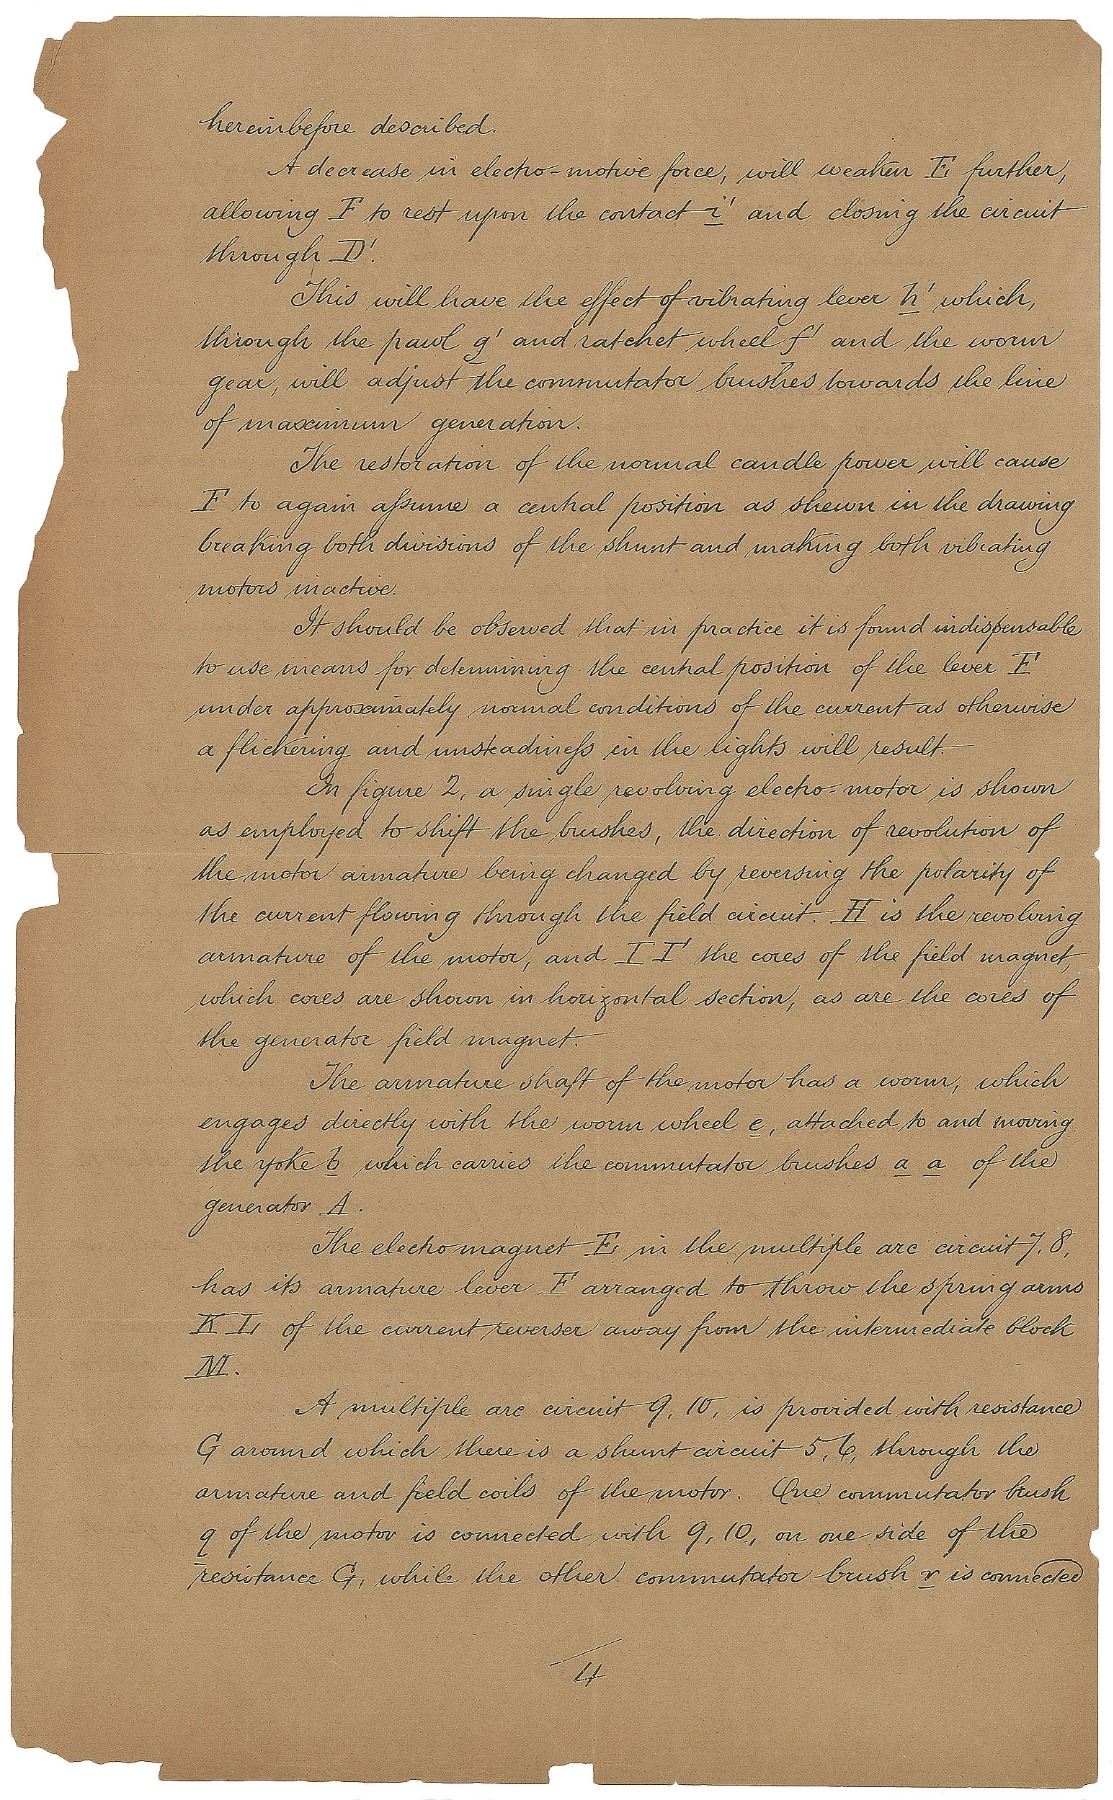 hereinbefore described.
A decrease in electro=motive force, will weaken E, further,
allowing F to rest upon the contact i' and closing the circuit
through D'.
This will have the effect of vibrating lever h' which,
through the pawl g' and ratchet wheel f' and the worm
gear, will adjust the commutator brushes towards the line
of maximum generation.
The restoration of the normal candle power will cause
F to again assume a central position as shewn in the drawing
breaking both divisions of the shunt and making both vibrating
motors inactive.
It should be observed that in practice it is found indispensable
to use means for determining the central position of the lever F
under approximately normal conditions of the current as otherwise
a flickering and unsteadiness in the lights will result.
In figure 2, a single revolving electro=motor is shown
as employed to shift the brushes, the direction of revolution of
the motor armature being changed by reversing the polarity of
the current flowing through the field circuit. H is the revolving
armature of the motor, and I I' the cores of the field magnet,
which cores are shown in horizontal section, as are the cores of
the generator field magnet.
The armature shaft of the motor has a worm, which
engages directly with the worm wheel e, attached to and moving
the yoke b which carries the commutator brushes a a of the
generator A.
The electromagnet E, in the multiple arc circuit 7, 8,
has its armature lever F arranged to throw the spring arms
K L, of the current reverser away from the intermediate block
M.
A multiple arc circuit 9, 10, is provided with resistance
G around which there is a shunt circuit 5, 6, through the
armature and field coils of the motor. One commutator brush
q of the motor is connected with 9, 10, on one side of the
resistance G, while the other commutator brush r is connected
4